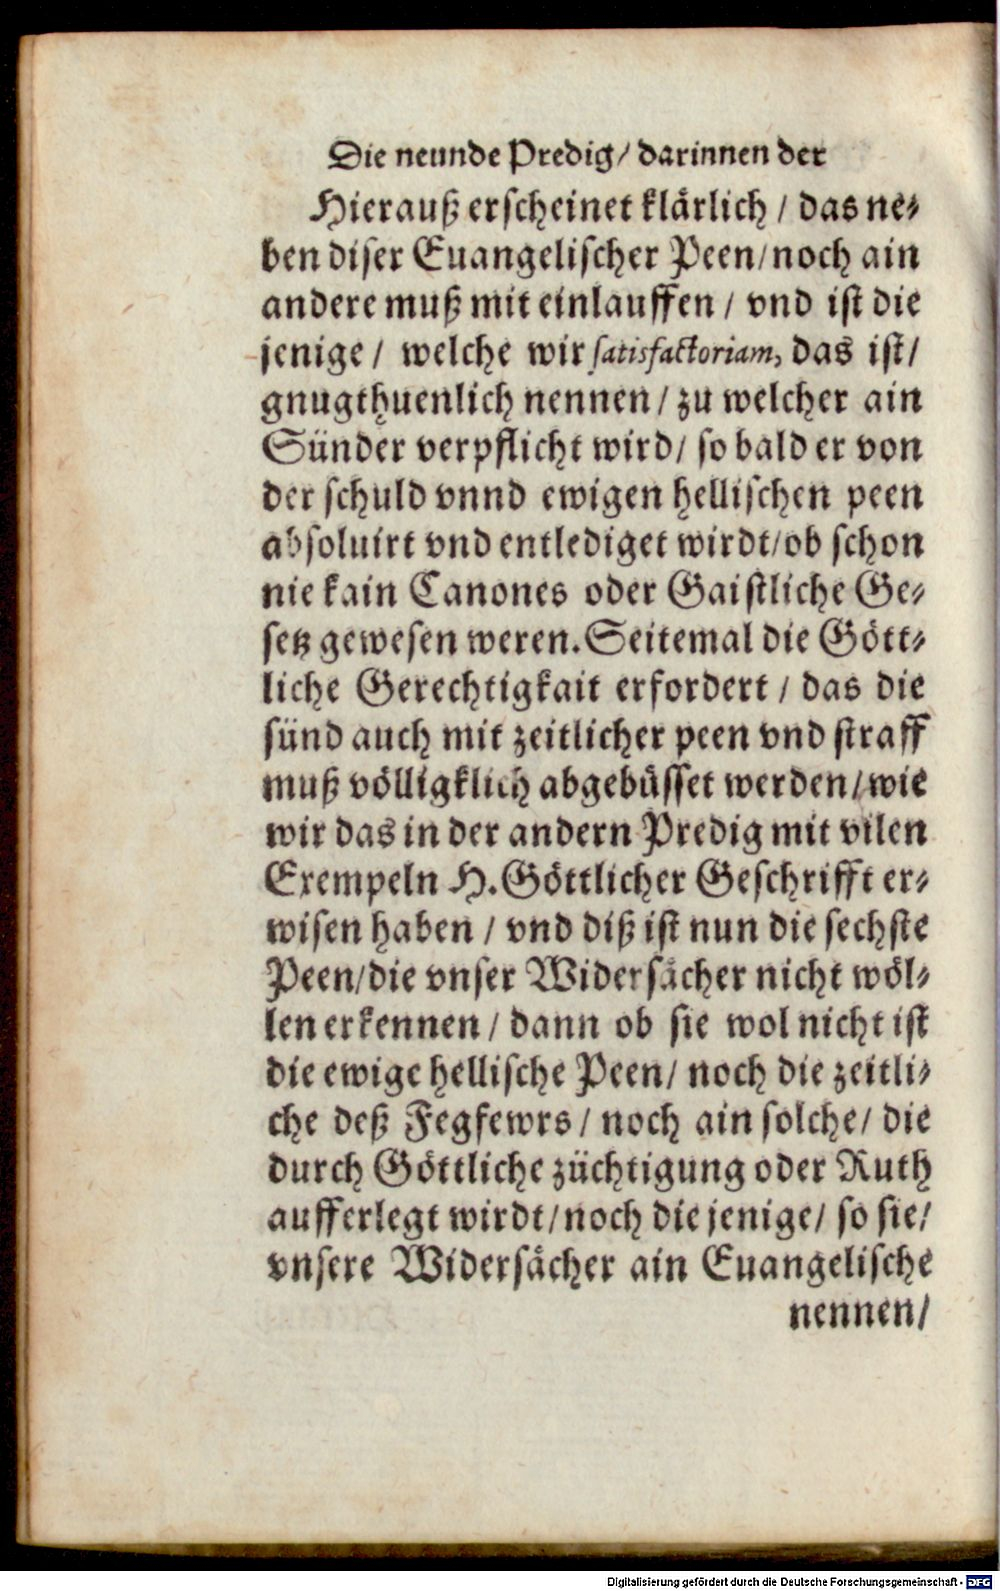 Die neunde Predig/ darinnen der
Hierauß erscheinet klärlich / das ne-
ben diser Euangelischer Peen/noch ain
andere muß mit einlauffen / vnd ist die
jenige / welche wir satisfactoriam, das ist/
gnugthuenlich nennen / zu welcher ain
Sünder verpflicht wird/ so bald er von
der schuld vnnd ewigen hellischen peen
absoluirt vnd entlediget wirdt/ob schon
nie kain Canones oder Gaistliche Ge-
setz gewesen weren. Seitemal die Gött-
liche Gerechtigkait erfordert / das die
sünd auch mit zeitlicher peen vnd straff
muß völligklich abgebüsset werden/wie
wir das in der andern Predig mit vilen
Exempeln H. Göttlicher Geschrifft er-
wisen haben / vnd diß ist nun die sechste
Peen/die vnser Widersächer nicht wöl-
len erkennen / dann ob sie wol nicht ist
die ewige hellische Peen/ noch die zeitli-
che deß Fegfewrs / noch ain solche/ die
durch Göttliche züchtigung oder Ruth
aufferlegt wirdt/noch die jenige/ so sie/
vnsere Widersächer ain Euangelische
nennen/
Digitalisierung gefördert durch die Deutsche Forschungsgemeinschaft - DFG